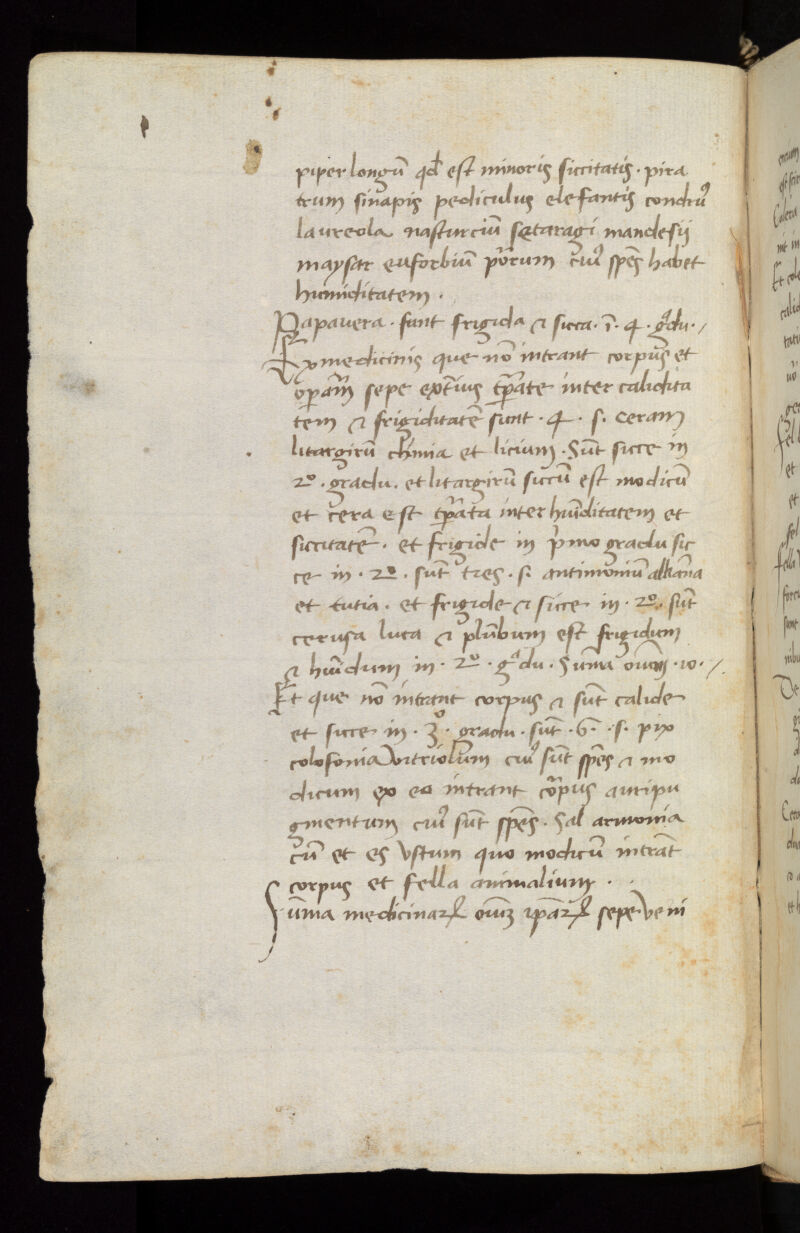 piper longū qđ est minoris siccitatis · pira
trum sinapis pediculus elefantis condruꝰ
laureola nasturciū setaragi mandesij
maysar euforbiū porrum cuiꝰ sp̄es habet
humiditatem ·
Papauera · sunt frigida ⁊ sicca · ī · 4 · gᵃdu · /
Ex medicinis que nō intrant corpus et
opant̄ sepe exteriꝰ tp̄ate inter calidita
tem ⁊ frigiditatē sunt · 4 · s · ceram
litargirū chimia et licium · Sūt sicce in
2º · gradu · et litargirū siccū est modicū
et cera est tp̄ata inter hūiditatem et
siccitatē · et frigide in pⁱmo gradu sic
ce in · 2º · sūt tres · s · antimoniū
et tutia · et frigide ⁊ sicce in · 2º · sūt
cerusa luta ⁊ plūbum est frigidum
⁊ hūidum in · 2º · gᵃdu · Sūma oīum · 10 · /
Et que nō intrant corpus ⁊ sūt calide
et sicce in · 3º · gradu · sūt · 6 · s · pix
colofonia vitriolum cuiꝰ sūt sp̄es ⁊ mo
dicum ex eo intrant corpus auripu
gmentum cuiꝰ sūt sp̄es · Sal armonia
cū et es vstum quo modicū intrāt
corpus et fella animalium ·
Sūma medicinarꝝ oīuꝫ ip̄arꝝ sepe veni